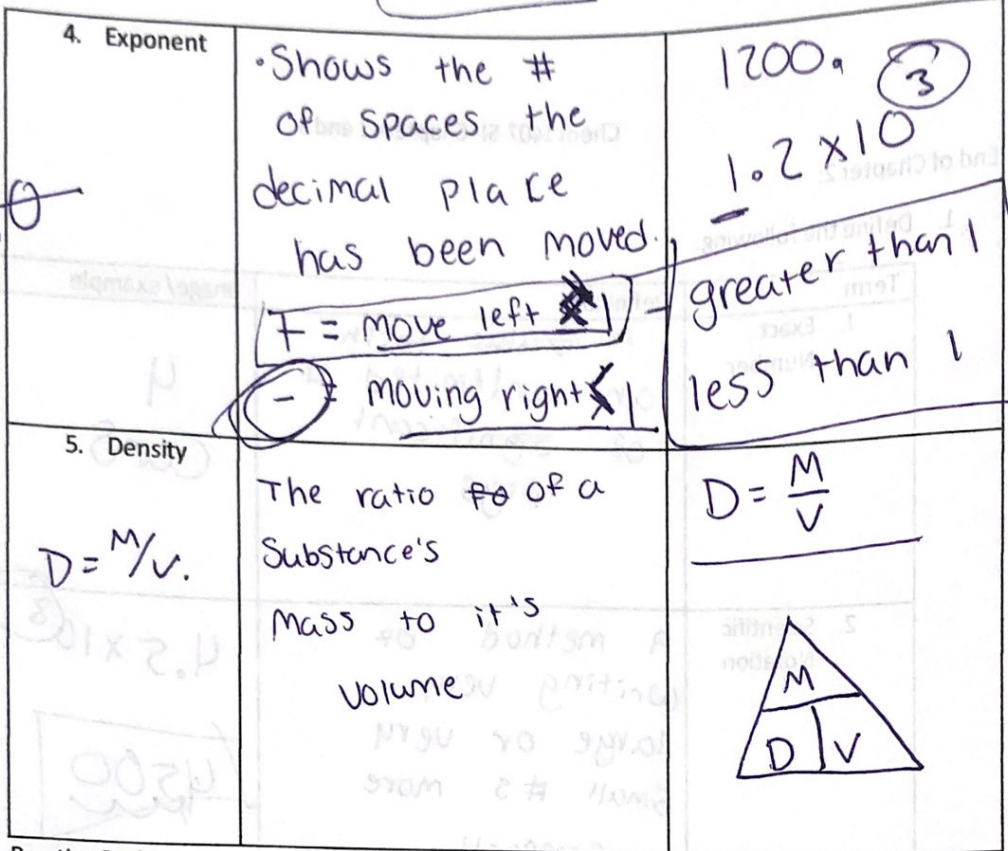 4. Exponent
• Shows the #
of spaces the
decimal place
has been moved.
+ = move left
- = moving right
1200.
1.2 x 10 3
greater than 1
less than 1
5. Density
D = M/V.
The ratio of a
Substance's
Mass to it's
Volume
D = M
V
M
D V